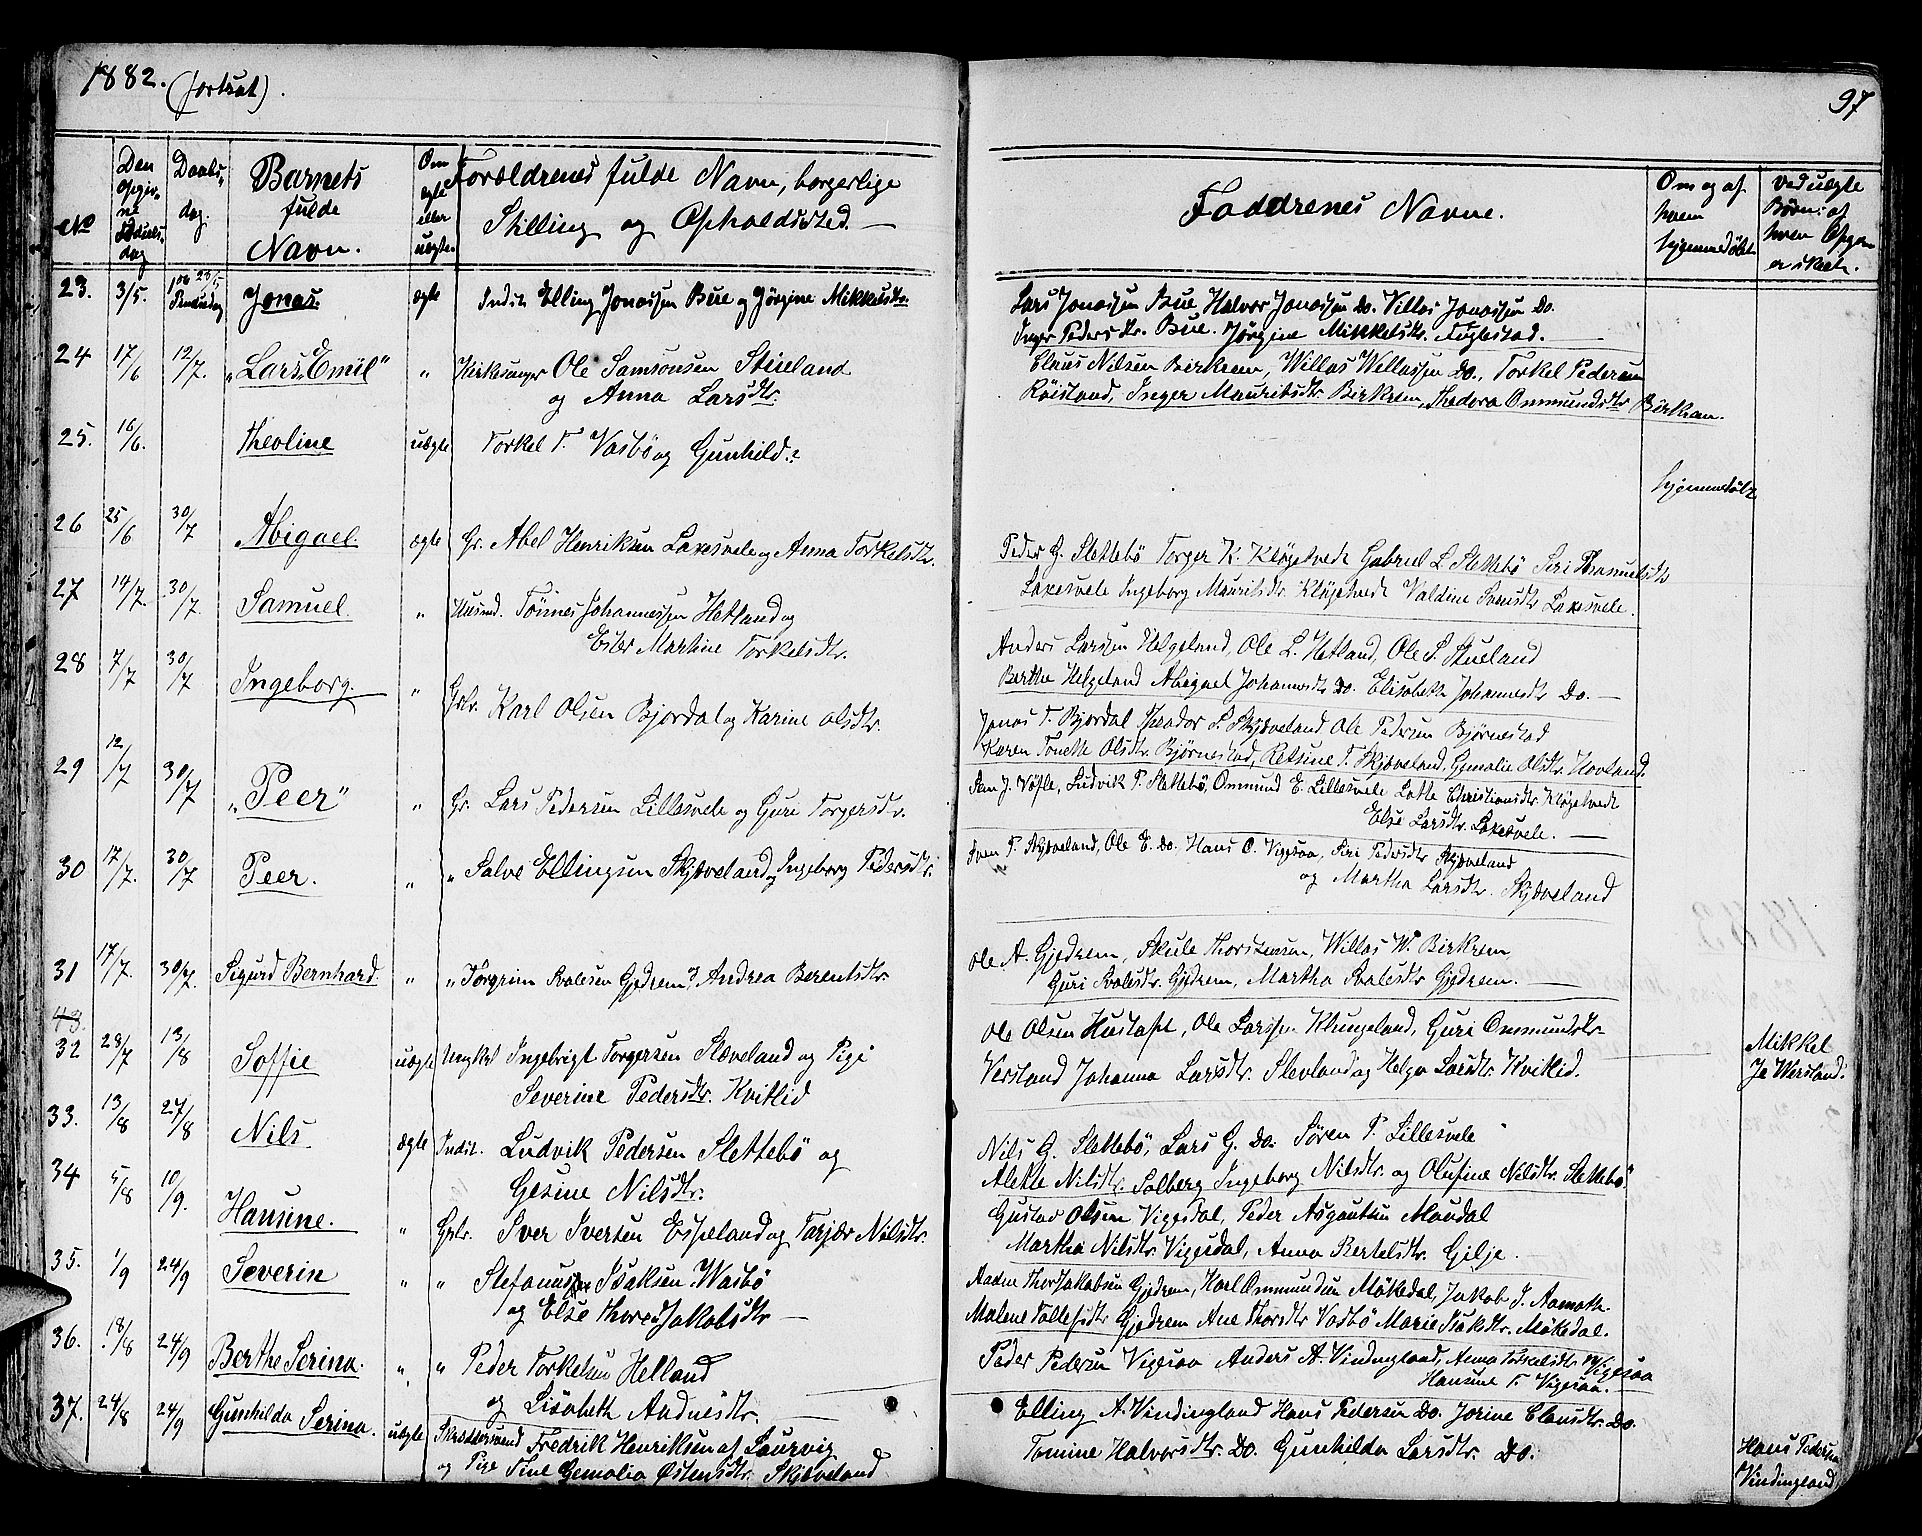 1882. (fortsat).
97
No
Den opgivne Fødselsdag
Daabsdag.
Barnets fulde Navn.
Om ægte eller uægte
Forældrenes fulde Navn, borgerlige Stilling og Opholdssted.
Faddrenes Navne.
Om og af hvem hjemmedøbt
Ved uægte Børn: af hvem Opgav. er skeet.
23. 3/5. Jonas. ægte Indst. Elling Jonassen Bue og Jørgine Mikkelsdtr.
Lars Jonassen Bue Halvor Jonassen Do. Villas Jonassen Do.
Inger Pedersdtr. Bue. Jørgine Mikkelsdtr. Fuglestad.
24 17/6 12/7. "Lars Emil" " Kirkesanger Ole Samsonsen Stueland
og Anna Larsdtr.
Claus Nilsen Birkrem, Willas Willassen Do., Torkel Pedersen
Röisland, Inger Mauritsdtr. Birkrem, Thedora Ommundsdtr Birkrem.
25. 16/6. Theoline uægte Torkel T. Vasbö og Gunhild.?
hjemmedöbt
26 25/6 30/7 Abigael. ægte Gr. Abel Henriksen Laxesvele og Anna Torkelsdtr.
Peder G. Slettebö Torger K. Kløgetvedt Gabriel L. Slettebö Siri
Laxesvele Ingeborg Mauritsdtr. Kløgetvedt Valdine Svensdtr Laxesvele.
27 14/7. 30/7. Samuel. " Husmd. Tönnes Johannessen Hetland og
Ester Martine Torkelsdtr.
Anders Larsen Helgeland, Ole L. Hetland, Ole S. Stueland
Berthe Helgeland Abigael Johannesdtr Do. Elisabeth Johannesdtr Do.
28 7/7 30/7 Ingeborg. " Gbr. Karl Olsen Bjordal og Karine Olsdtr.
Jonas T. Bjordal Theodor S. Skjæveland Ole Pedersen Björnestad
Karen Tonette Olsdtr. Bjørnestad, Retsine T. Skjæveland, Gemalie Olsdtr. Hovland.
29 12/7 30/7 "Peer" " Gr. Lars Pedersen Lillesvele og Guri Torgersdtr.
J. Vøfle, Ludvik P. Slettebö, Ommund E. Lillesvele Lotte Christiansdtr. Kløgetvedt
Else Larsdtr. Laxesvele.
30 17/7. 30/7 Peer. " " Salve Ellingsen Skjæveland og Ingeborg Pedersdtr.
Sven P. Skjæveland, Ole E. Do. Hans O. Vigesaa, Siri Pedersdtr Skjæveland
og Martha Larsdtr. Skjæveland
31 17/7. 30/7. Sigurd Bernhard. " " Törgrim Svalesen Gjedrem og Andrea Berentsdtr.
Ole A. Gjedrem, Skule Thorstensen, Willas W. Birkrem,
Guri Svalesdtr. Gjedrem, Martha Svalesdtr Gjedrem.
43.
32 23/7 13/8 Soffie uægte Ungkel Ingebrigt Torgersen Slæveland og Pige
Severine Pedersdtr. Kvitlid
Ole Olsen Hustoft, Ole Larssen Klungeland, Guri Ommundsdtr.
Versland Johanna Larsdtr. Slevland og Helga Larsdtr Kvitlid.
Mikkel
Versland.
33. 13/8 27/8 Nils. ægte Indst. Ludvik Pedersen Slettebö og
Gesine Nilsdtr.
Nils G. Slettebö, Lars G. Do. Sören P. Lillesvele
Alette Nilsdtr. Solberg Ingeborg Nilsdtr. og Olufine Nilsdtr. Slettebö
34 5/8 10/9. Hansine. " Gbr. Iver Iversen Espeland og Tarjær Nilsdtr.
Gustav Olsen Vigesdal, Peder Asgautsen Maudal
Martha Nilsdtr. Vigesdal, Anna Bertelsdtr. Gilje.
35. 1/9 24/9 Severin " " Stefanus Isaksen Wasbö
og Else Thore Jakobsdtr
Aaden Thor Jakobsen Gjedrem, Karl Ommundsen Mökedal, Jakob J. Aamoth.
Malene Tollefsdtr Gjedrem Ane Thorsdtr Vasbö Marie Isaksdtr. Møkedal.
36. 18/8 24/9 Berthe Serina. " " Peder Torkelsen Helland
og Lisabeth Andreasdtr.
Peder Pedersen Vigesaa Anders A. Vindingland, Anna Torkelsdtr Vigesaa
Hansine T. Vigesaa.
37. 24/8 24/9 Gunhilda Serina. uægte Skræddersvend Fredrik Henriksen af Laurvig
og Pige Tine Gemalia Østensdtr. Skjæveland
Elling A. Vindingland Hans Pedersen Do. Jorine Clausdtr. Do.
Tomine Halvorsdtr. Do. Gunhilda Larsdtr. Do.
Hans Pedersen
Vindingland.